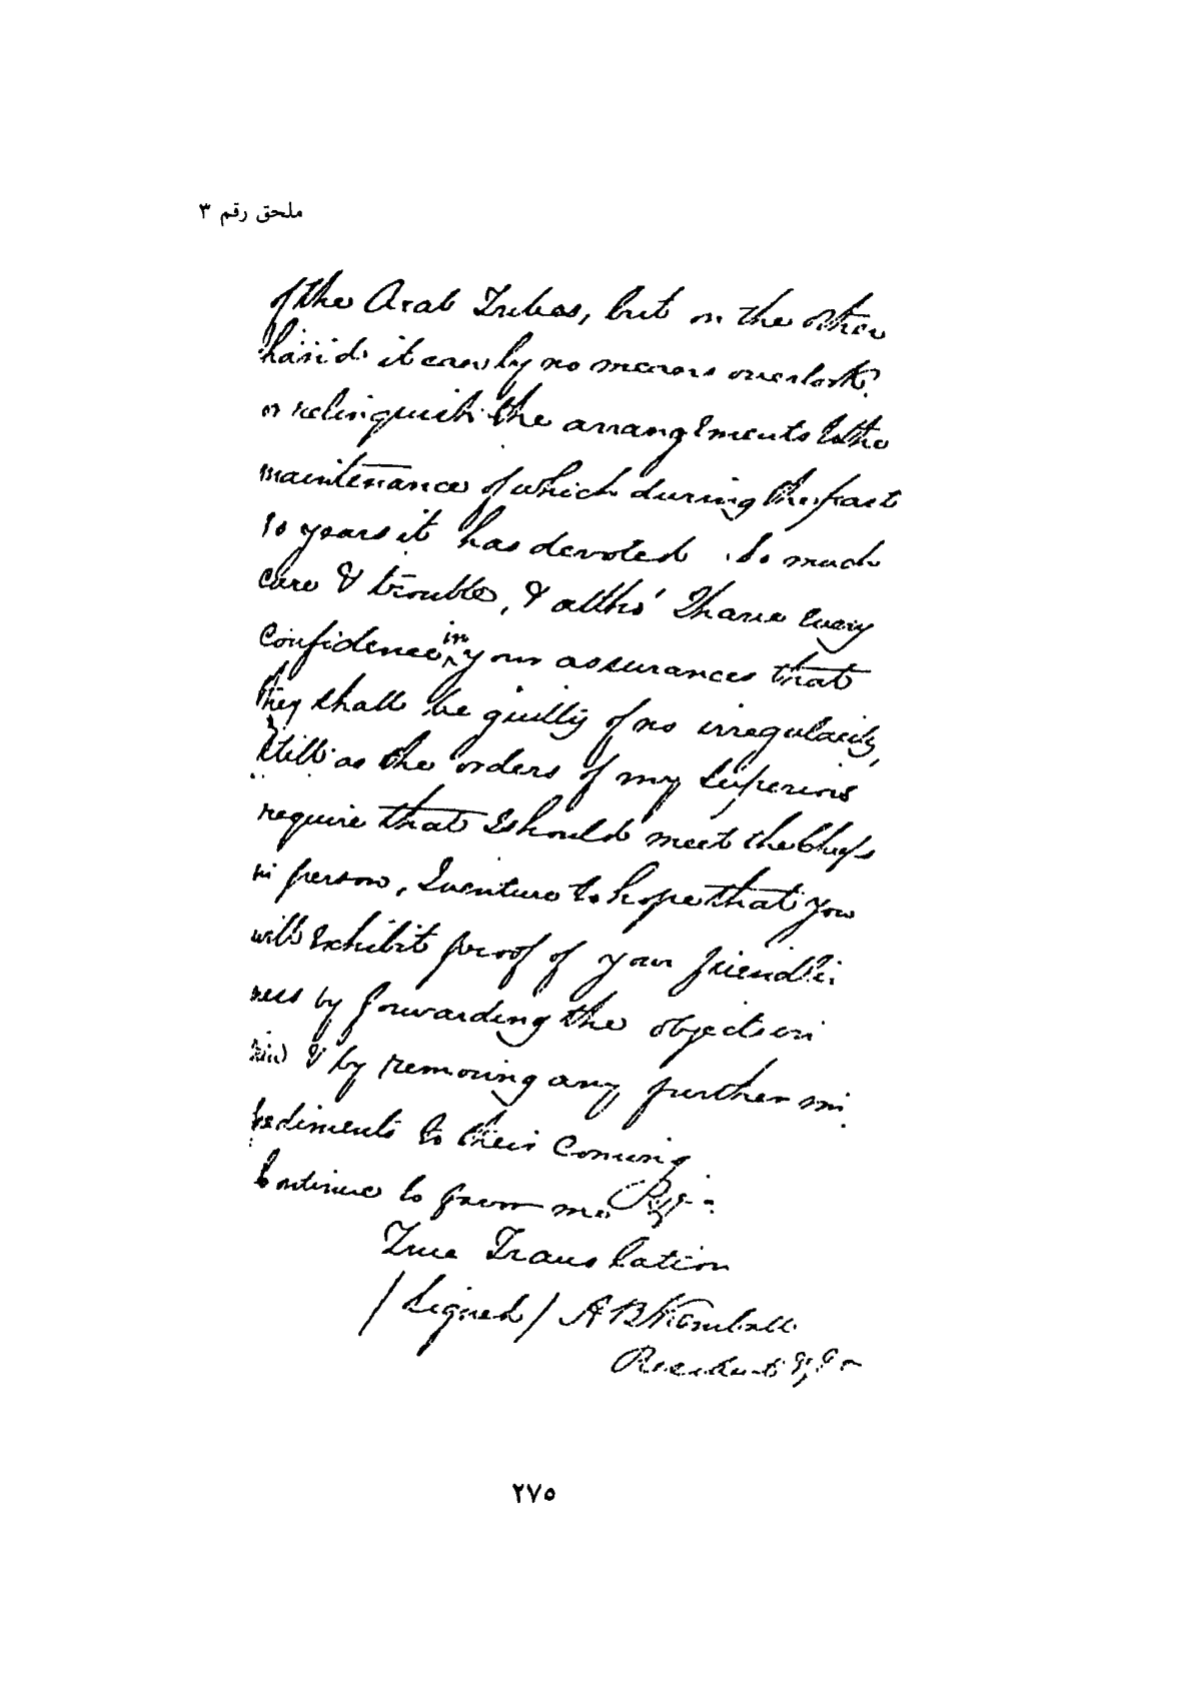 ملحق رقم ٣
of the Arab Tribes, but on the other
hand it can by no means overlook
or relinquish the arrangements to the
maintenance of which during the past
10 years it has devoted so much
care & trouble, & altho' I have every
confidence in your assurances that
they shall be guilty of no irregularity,
still as the orders of my Superiors
require that I should meet the Chiefs
in person, I venture to hope that you
will exhibit proof of your friendli
ness by forwarding the object in
& by removing any further im
pediments to their coming
Continue to favor me
True Translation
/Signed/ A B Kemball
Resident P. G.
٢٧٥